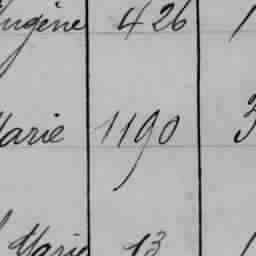 Eugène 426 1
Marie 1190 3
Marie 13 1